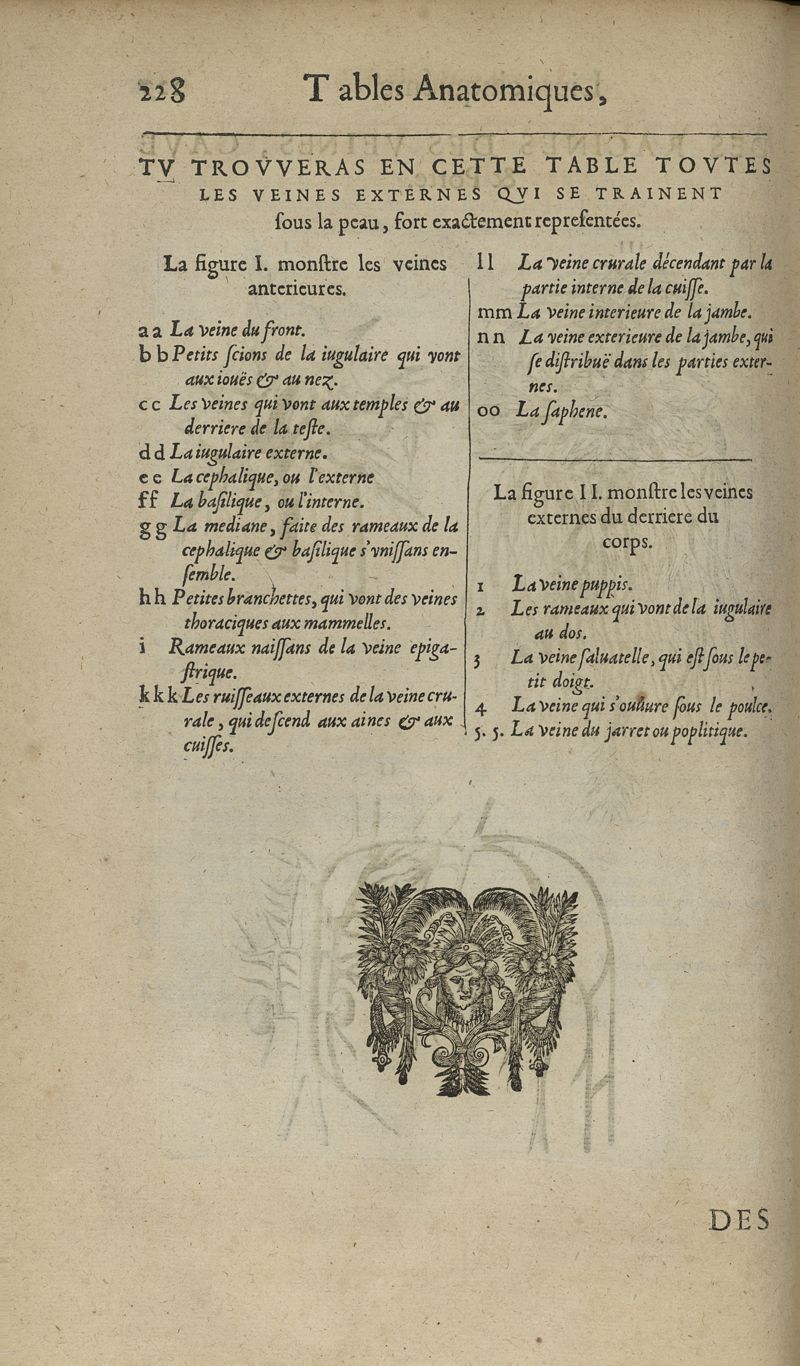 228 Tables Anatomiques,
TV TROVVERAS EN CETTE TABLE TOVTES
LES VEINES EXTERNES QVI SE TRAINENT
ſous la peau, fort exactement repreſentées.
La figure I. monſtre les veines
anterieures.
a a La veine du front.
b b Petits ſcions de la iugulaire qui vont
aux iouës & au nez.
c c Les veines qui vont aux temples & au
derriere de la teſte.
d d La iugulaire externe.
e e La cephalique, ou l'externe
f f La baſilique, ou l'interne.
g g La mediane, faite des rameaux de la
cephalique & baſilique s'vniſſans en-
ſemble.
h h Petites branchettes, qui vont des veines
thoraciques aux mammelles.
i Rameaux naiſſans de la veine epiga-
ſtrique.
k k k Les ruiſſeaux externes de la veine cru-
rale, qui deſcend aux aines & aux
cuiſſes.
l l La veine crurale décendant par la
partie interne de la cuiſſe.
m m La veine interieure de la jambe.
n n La veine exterieure de la jambe, qui
ſe diſtribuë dans les parties exter-
nes.
oo La ſaphene.
La figure II. monſtre les veines
externes du derriere du
corps.
1 La veine puppis.
2 Les rameaux qui vont de la iugulaire
au dos.
3 La veine ſaluatelle, qui eſt ſous le pe-
tit doigt.
4 La veine qui s'ouure ſous le poulce.
5. 5. La veine du jarret ou poplitique.
DES